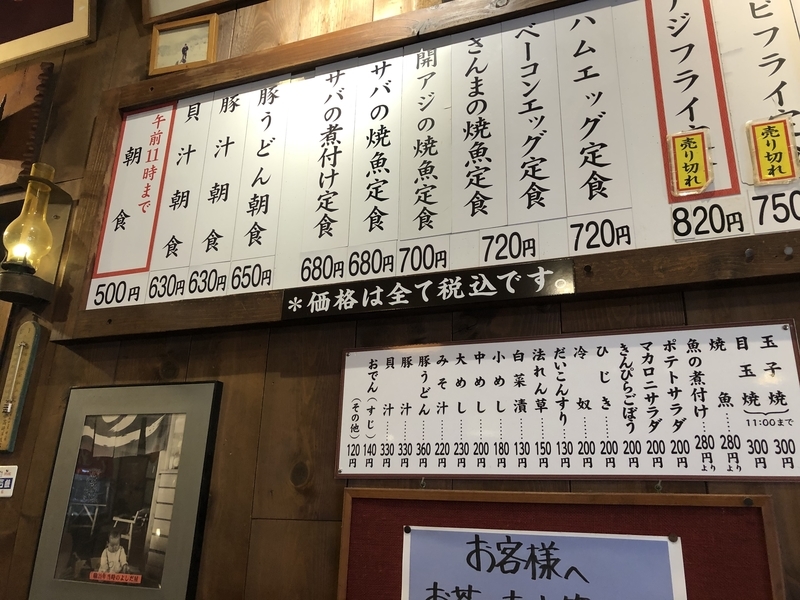 ビフライ
売り切れ
750
アジフライ
売り切れ
820円
ハムエッグ定食
720円
ベーコンエッグ定食
720円
さんまの焼魚定食
開アジの焼魚定食
700円
サバの焼魚定食
680円
サバの煮付け定食
680円
豚うどん朝食
650円
豚汁朝食
630円
貝汁朝食
630円
午前11時まで
朝食
500円
＊価格は全て税込です。
玉子焼
300円
目玉焼
300円
11:00まで
焼魚……280円より
魚の煮付け…280円より
ポテトサラダ 200円
マカロニサラダ 200円
きんぴらごぼう 200円
ひじき……200円
冷奴……200円
だいこんすり 130円
法れん草…150円
白菜漬…130円
小めし…180円
中めし…200円
大めし…230円
みそ汁…220円
豚うどん…360円
豚汁……330円
貝汁……330円
おでん（すじ）140円
（その他）120円
お客様へ